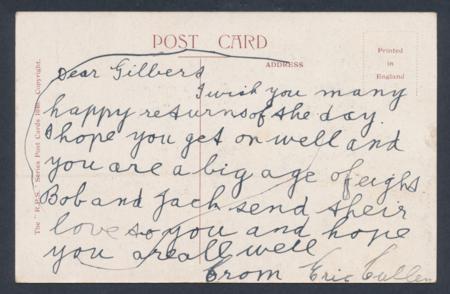 POST CARD
ADDRESS
Printed
in
England
The "R.P.S." Series Post Cards Copyright.
Dear Gilbert
I wish you many
happy returns of the day.
I hope you get on well and
you are a big age of eight
Bob and Jack send their
love to you and hope
you are all well
From Eric Cullen